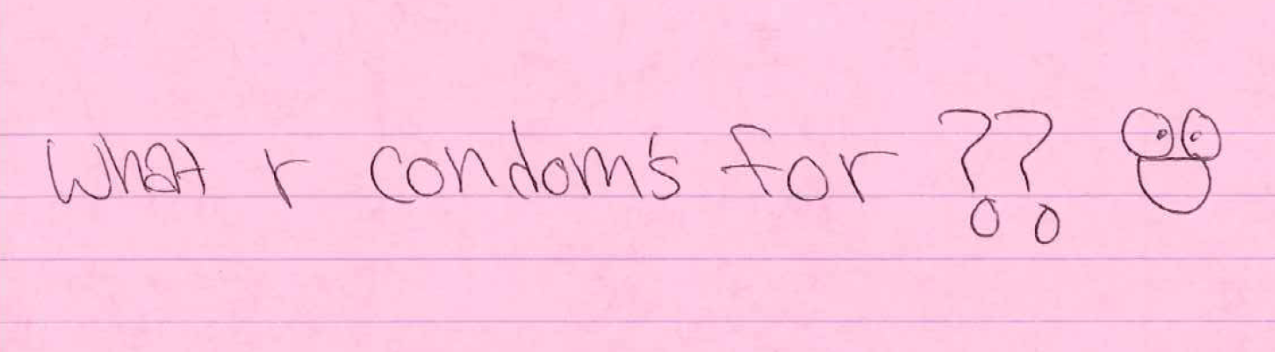 What r condom's for ??